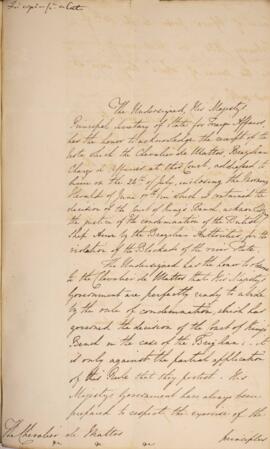 The Undersigned, His Majesty's
Principal Secretary of State for Foreign Affairs,
has the honor to acknowledge the receipt of the
Note which the Chevalier de Mattos, Brazilian
Chargé d'Affaires at this Court, addressed to
him on the 24th of July, inclosing the Morning
Herald of June in which is reported the
decision of the Court of King's Bench, acknowledging
the justice of the condemnation of the British
Ship by the Brazilian Authorities for the
violation of the Blockade of the river Plate.
The Undersigned has the honor to
to the Chevalier de Mattos that His Majesty's
Government are perfectly ready to abide
by the rule of condemnation, which has
governed the decision of the Court of King's
Bench in the case of the : it
is only against the partial application
of this Rule that they protest. His
Majesty's Government have always been
prepared to respect the exercise of the
principles
The Chevalier de Mattos